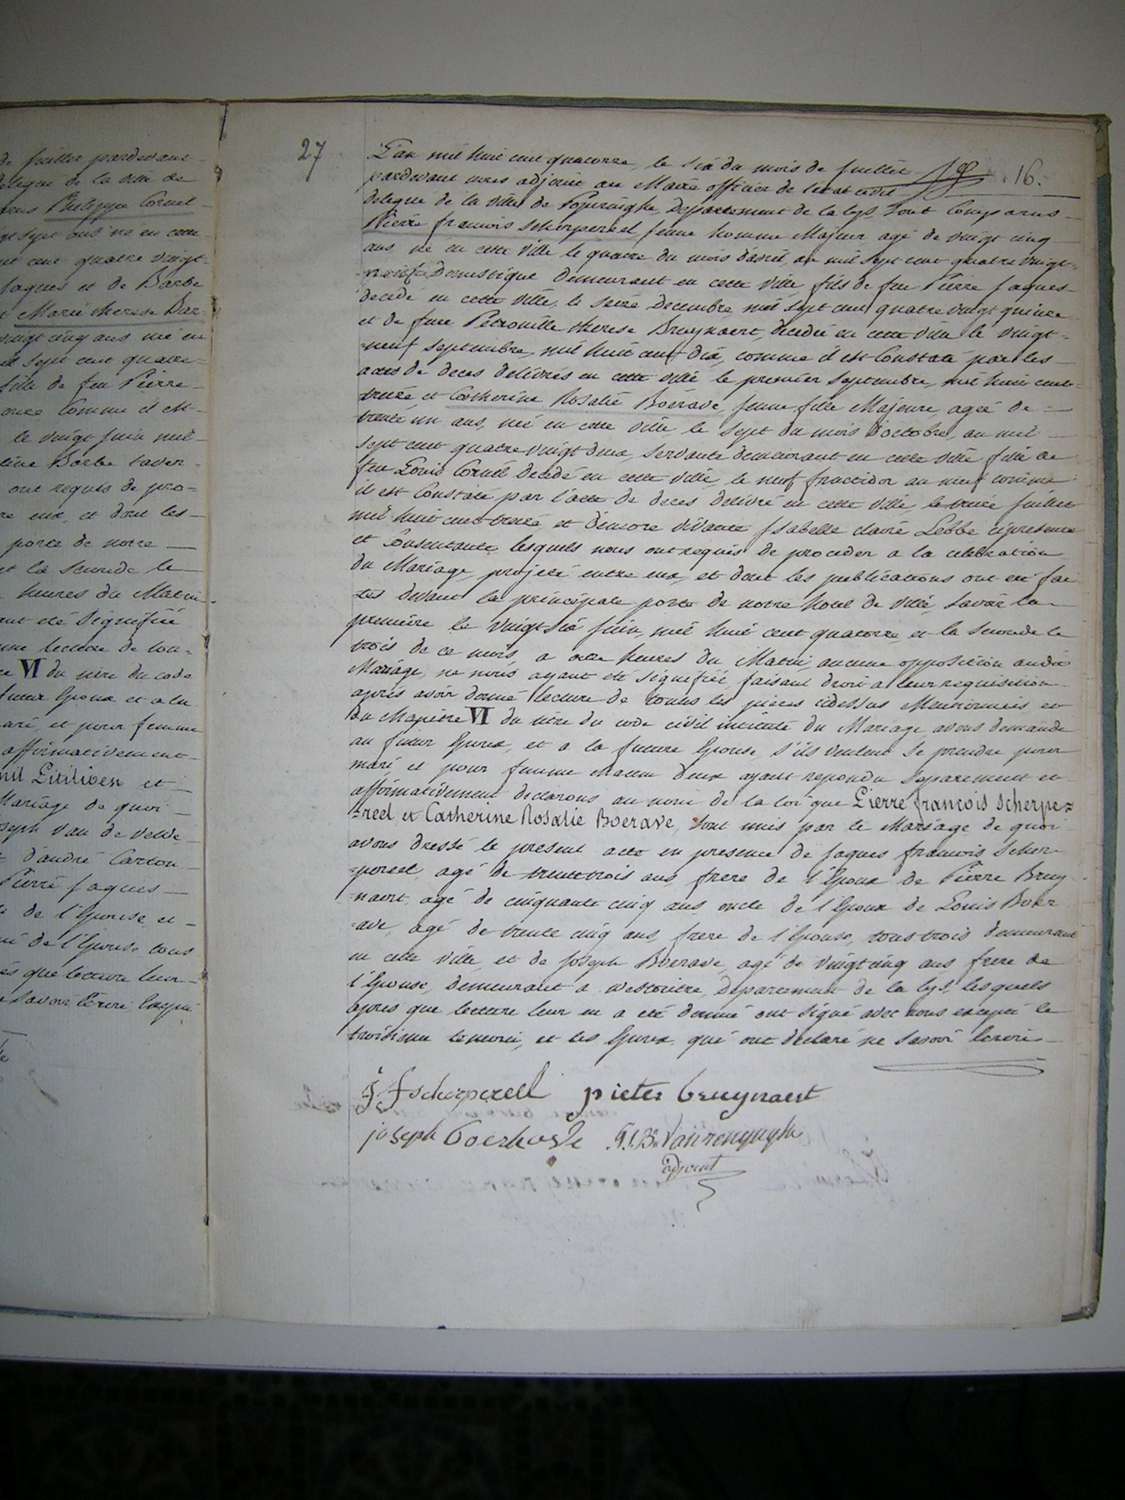 de juillet pardevant
delegué de la ville de
Philippe Cornel
sept ans né en cette
cent quatre vingt
Jaques et de Barbe
Marie therese Bar
vingt cinq ans née en
sept cent quatre
fille de feu Pierre
comme il est
le vingt juin mil
Barbe
ont requis de pro=
eux, et dont les
porte de notre
et la seconde le
heures du Matin
ont été signifiée
lecture de tou=
VI du titre du code
futur Epoux et a la
mari et pour femme
affirmativement
et
Mariage de quoi
Joseph Van de Velde
d'andré
Pierre Jaques
de l'Epouse et
de l'Epouse tous
que lecture leur
savoir Ecrire
27 L'an mil huit cent quatorze, le six du mois de Juillet 16.
pardevant nous adjoint au Maire officier de l'etat civil
delegué de la ville de Poperinghe Departement de la Lys, sont Comparus
Pierre francois Scherpereel jeune homme Majeur agé de vingt cinq
ans né en cette Ville le quatre du mois d'avril an mil sept cent quatre vingt=
=neuf Domestique demeurant en cette ville, fils de feu Pierre Jaques
decedé en cette ville, le seize Decembre mil sept cent quatre vingt quinze
et de feue Petronille therese Bruynaert, decedée en cette ville le vingt=
=neuf septembre, mil huit cent dix, comme il est Constaté par les
actes de deces delivrés en cette ville le premier septembre, mil huit cent
treize et Catherine Rosalie Boerave, jeune fille Majeure, agée de=
trente un ans, née en cette ville le sept du mois d'octobre, an mil
sept cent quatre vingt deux, servante demeurant en cette ville fille de
feu Louis Cornil decedé en cette ville, le neuf fructidor an neuf comme
il est Constaté par l'acte de deces delivré en cette ville, le treize Juillet
mil huit cent treize et d'encore vivante Isabelle claire Lebbe cipresente
et Consentante, lesquels nous ont requis de proceder a la celebration
du Mariage, projeté entre eux, et dont les publications ont été fai
tes devant la principale porte de notre hotel de ville, savoir la
premiere le vingt six juin, mil huit cent quatorze et la seconde le
trois de ce mois, a onze heures du Matin aucune opposition audit
Mariage, ne nous ayant été signifiée, faisant droit a leur requisition
après avoir donné lecture de toutes les pieces cidessus Mentionnées et
du chapitre VI du titre du code civil intitulé du Mariage avons demandé
au futur Epoux, et a la future Epouse, s'ils veulent se prendre pour
mari et pour femme chacun deux ayant repondu separement et
affirmativement declarons au nom de la loi que Pierre francois Scherpe=
=reel et Catherine Rosalie Boerave, sont unis par le Mariage de quoi
avons dressé le present acte en presence de Jaques francois Scher
=pereel, agé de trente trois ans, frere de l'Epoux de Pierre Bruy
=naert, agé de cinquante cinq ans, oncle de l'Epoux de Louis Boer
=ave, agé de trente cinq ans, frere de l'Epouse, tous trois demeurant
en cette ville, et de Joseph Boerave, agé de vingt cinq ans frere de
l'Epouse, demeurant a westoutre, departement de la Lys, lesquels
après que lecture leur en a été donnée ont signé avec nous excepté le
troisieme temoin, et les Epoux qui ont declaré ne savoir Ecrire
J F Scherpereel pieter bruynaert
joseph boerhave
adjoint